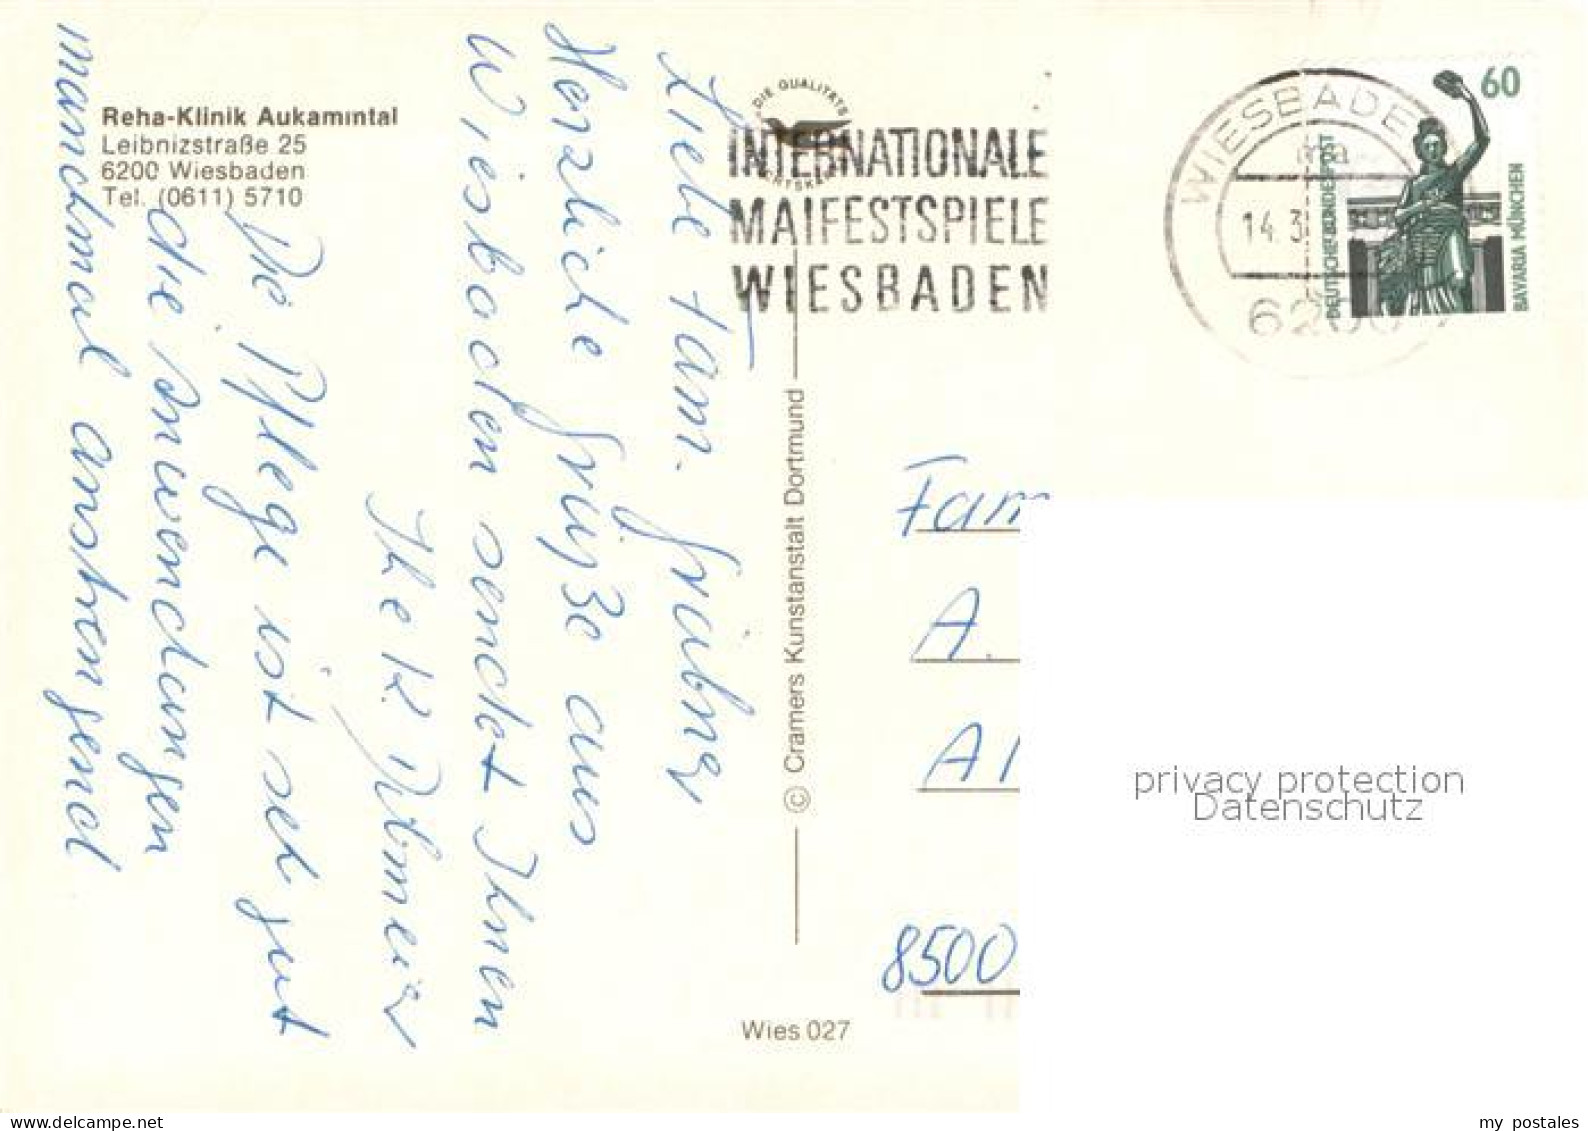 Reha-Klinik Aukammtal
Leibnizstraße 25
6200 Wiesbaden
Tel. (0611) 5710
Liebe Fam. Grübner
Herzliche Grüße aus
Wiesbaden sendet Ihnen
Ihe K.
Die Pflege ist seh gut
die Anwendungen
manchmal anstrengend
DIE QUALITÄTS
INTERNATIONALE
MAIFESTSPIELE
WIESBADEN
WIESBADEN
ma
14.3
6200
60
DEUTSCHE BUNDESPOST
BAVARIA MÜNCHEN
© Cramers Kunstanstalt Dortmund
Fam
A.
Al
8500
Wies 027
privacy protection
Datenschutz
delcampe.net
my_postales